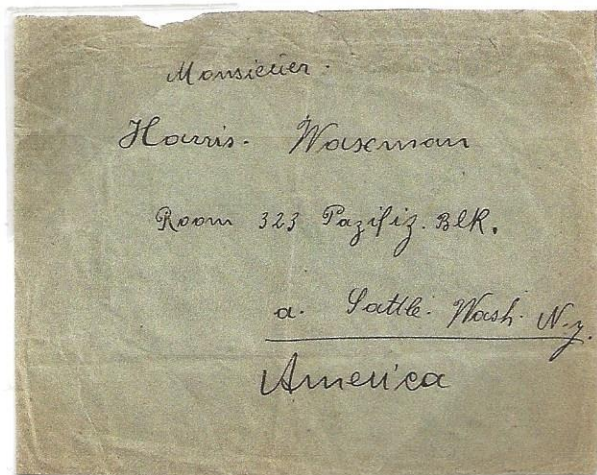 Monsieuer.
Harris. Waxman
Room 323 Pazifiz. Blk.
a. Sattle. Wash. N-y.
America